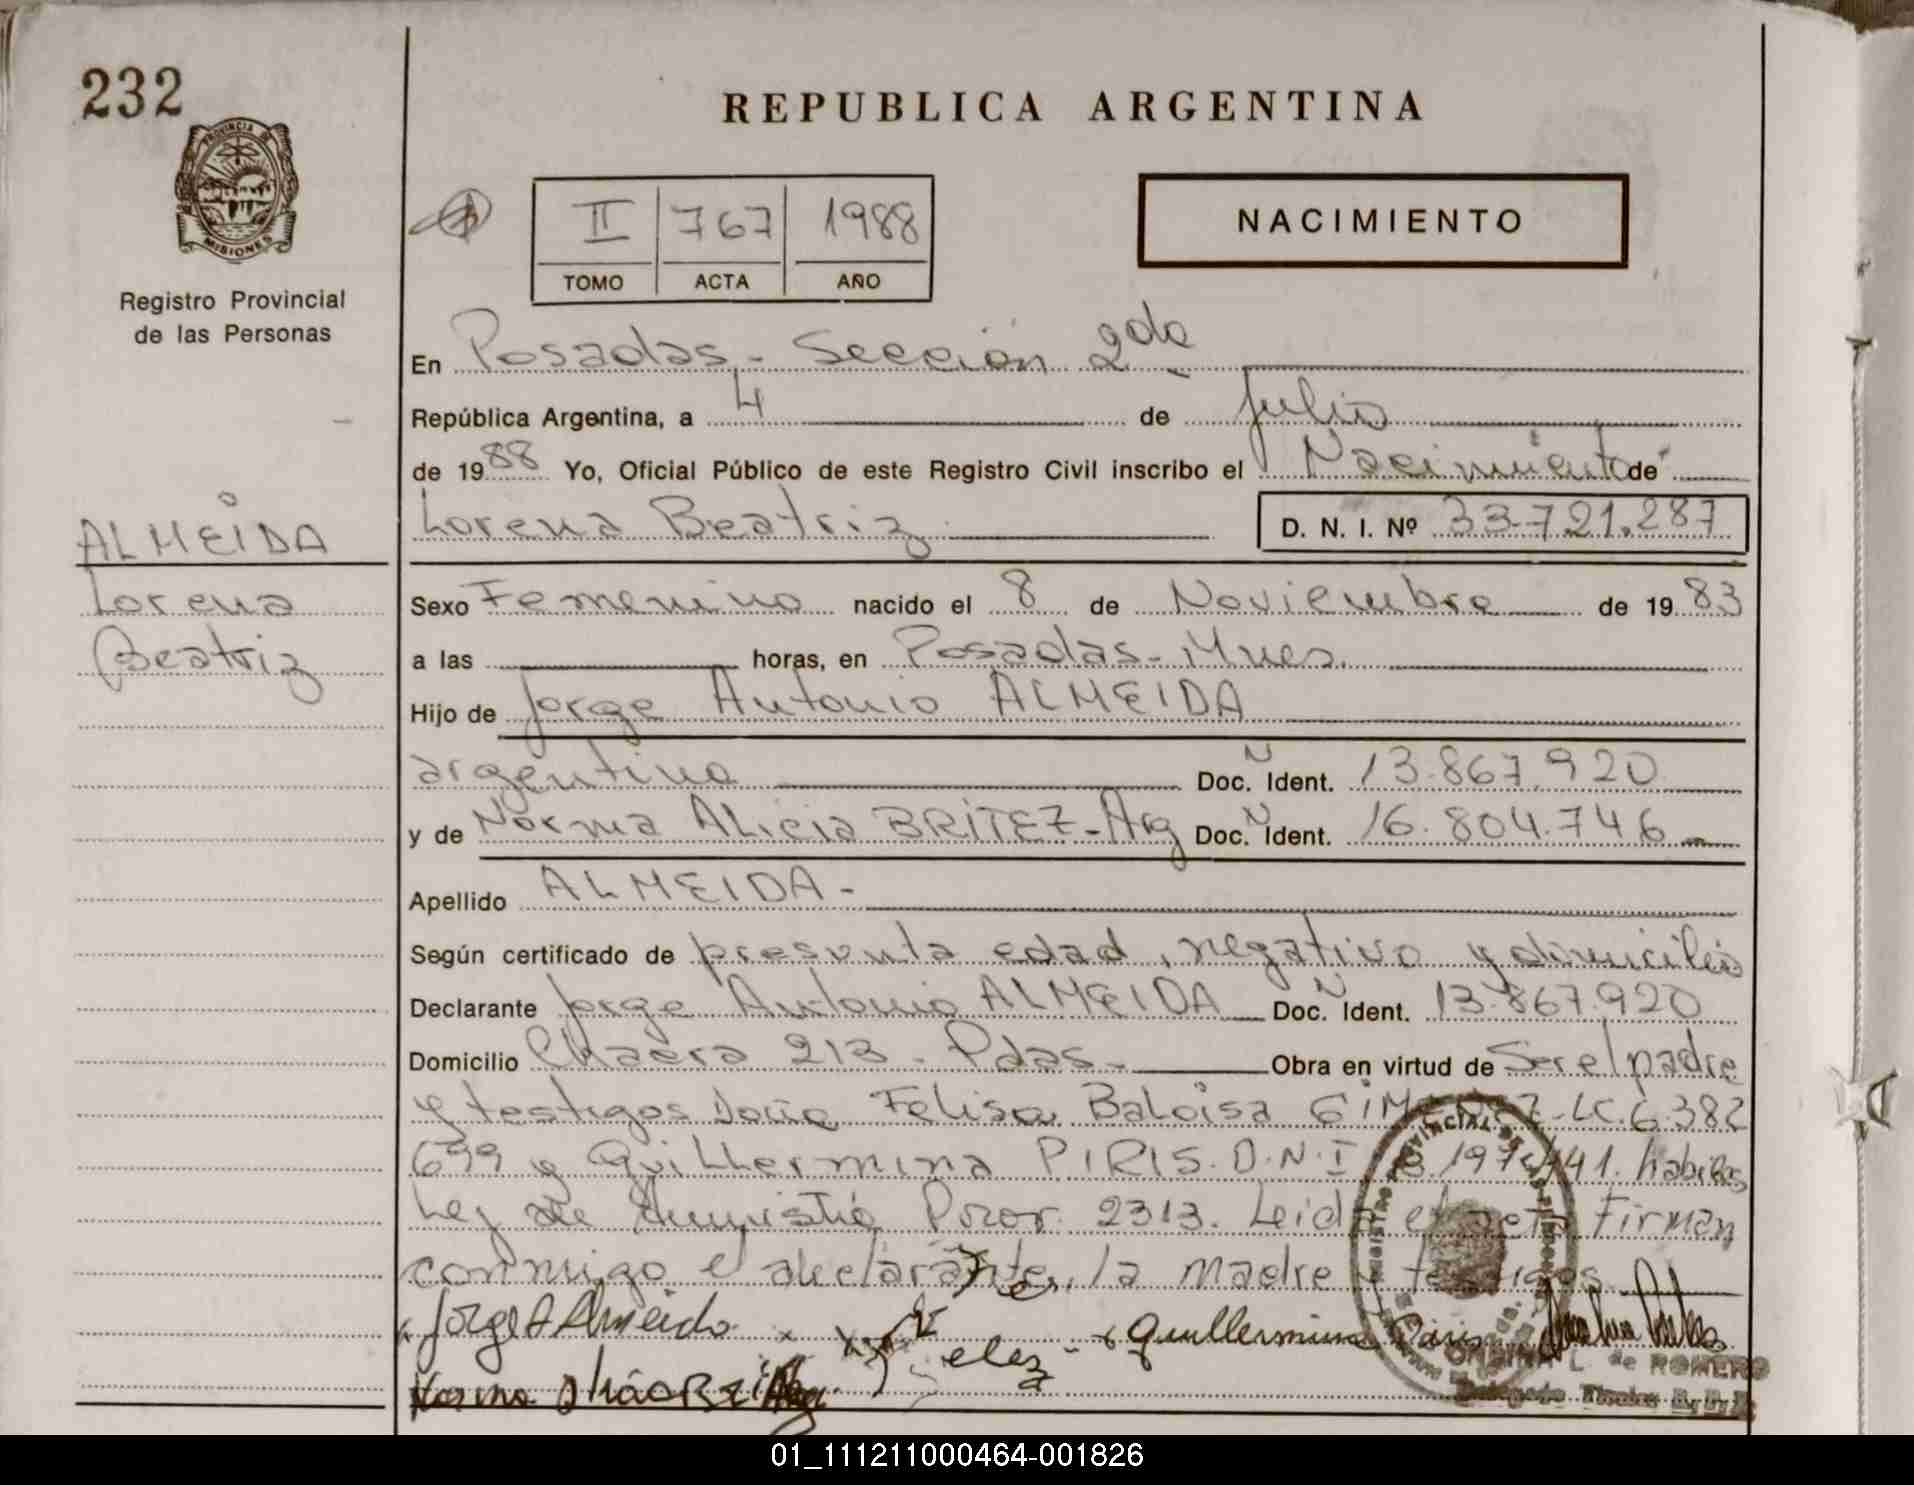 232
REPUBLICA ARGENTINA
PROVINCIA DE MISIONES
II 767 1988
TOMO ACTA AÑO
NACIMIENTO
Registro Provincial
de las Personas
En Posadas - Sección 2da
República Argentina, a 4 de Julio
de 1988 Yo, Oficial Público de este Registro Civil inscribo el Nacimiento de
ALMEIDA
Lorena
Beatriz
Lorena Beatriz D. N. I. Nº 33.721.287
Sexo Femenino nacido el 8 de Noviembre de 1983
a las horas, en Posadas - Mnes.
Hijo de Jorge Antonio ALMEIDA
argentino Doc. N Ident. 13.867.920
y de Norma ALicia BRITEZ - Arg Doc. N Ident. 16.804.746
Apellido ALMEIDA -
Según certificado de presunta edad, negativo y domicilio
Declarante Jorge Antonio ALMEIDA Doc. N Ident. 13.867.920
Domicilio Chacra 213 - Pdas - Obra en virtud de Ser el padre
y testigos Doña Felisa Baloisa GIMENEZ - LC. 6.382
699 y Quillermina PIRIS. D.N.I. habiles
Ley de Amnistia 2313. Leida el acta Firman
conmigo el declarante, la madre y testigos.
Jorge A Almeida
Quillermina Piris
Norma
L de ROMERO
01_111211000464-001826